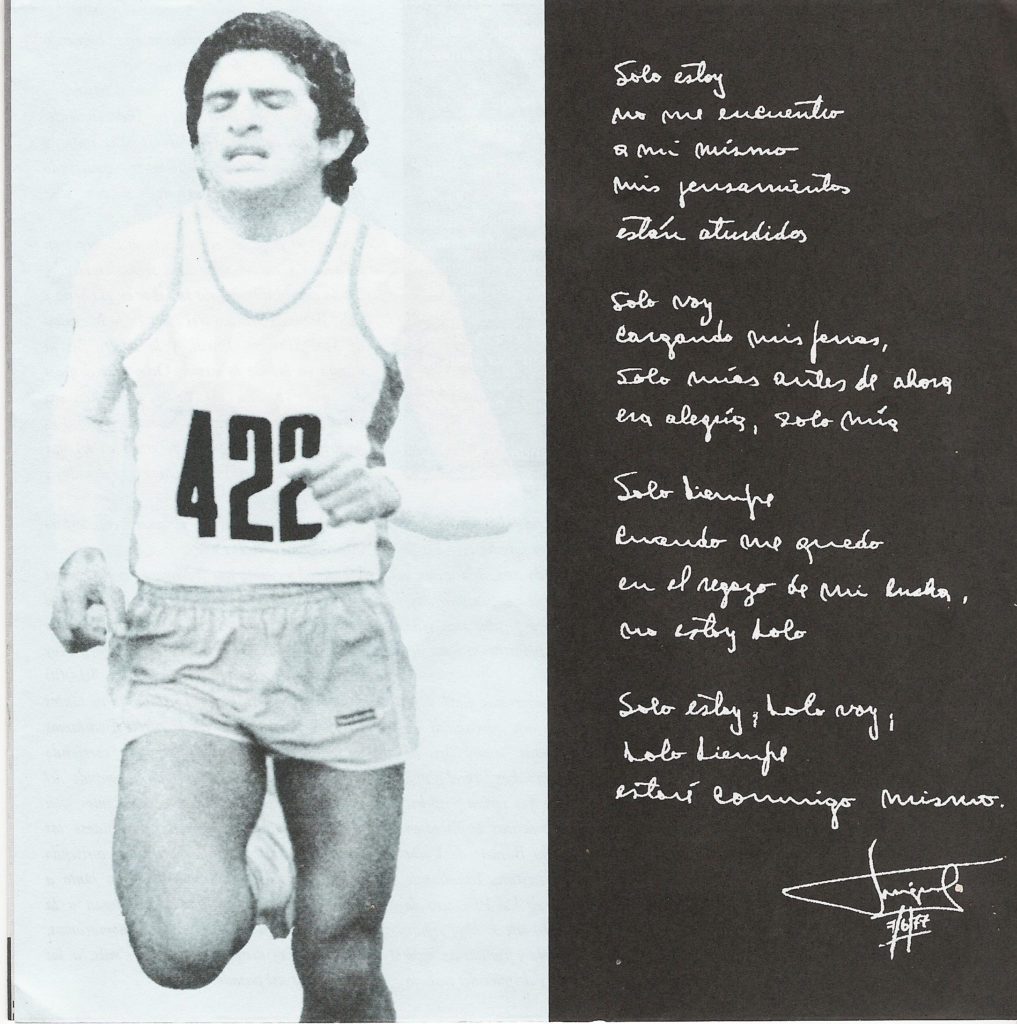 422
Solo estoy
no me encuentro
a mi mismo
mis pensamientos
están aturdidos
Solo voy
cargando mis penas,
Solo mías antes de ahora
era alegría, solo mía
Solo siempre
Cuando me quedo
en el regazo de mi lucha,
no estoy solo
Solo estoy, solo voy,
solo siempre
estaré conmigo mismo.
7/6/77